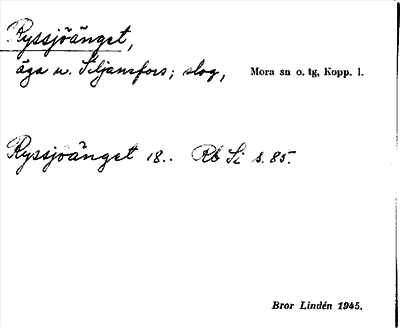 Ryssjöänget,
äga u. Siljansfors; slog, Mora sn o. tg, Kopp. l.
Ryssjoänget 18.. Rb Si s. 85.
Bror Lindén 1945.